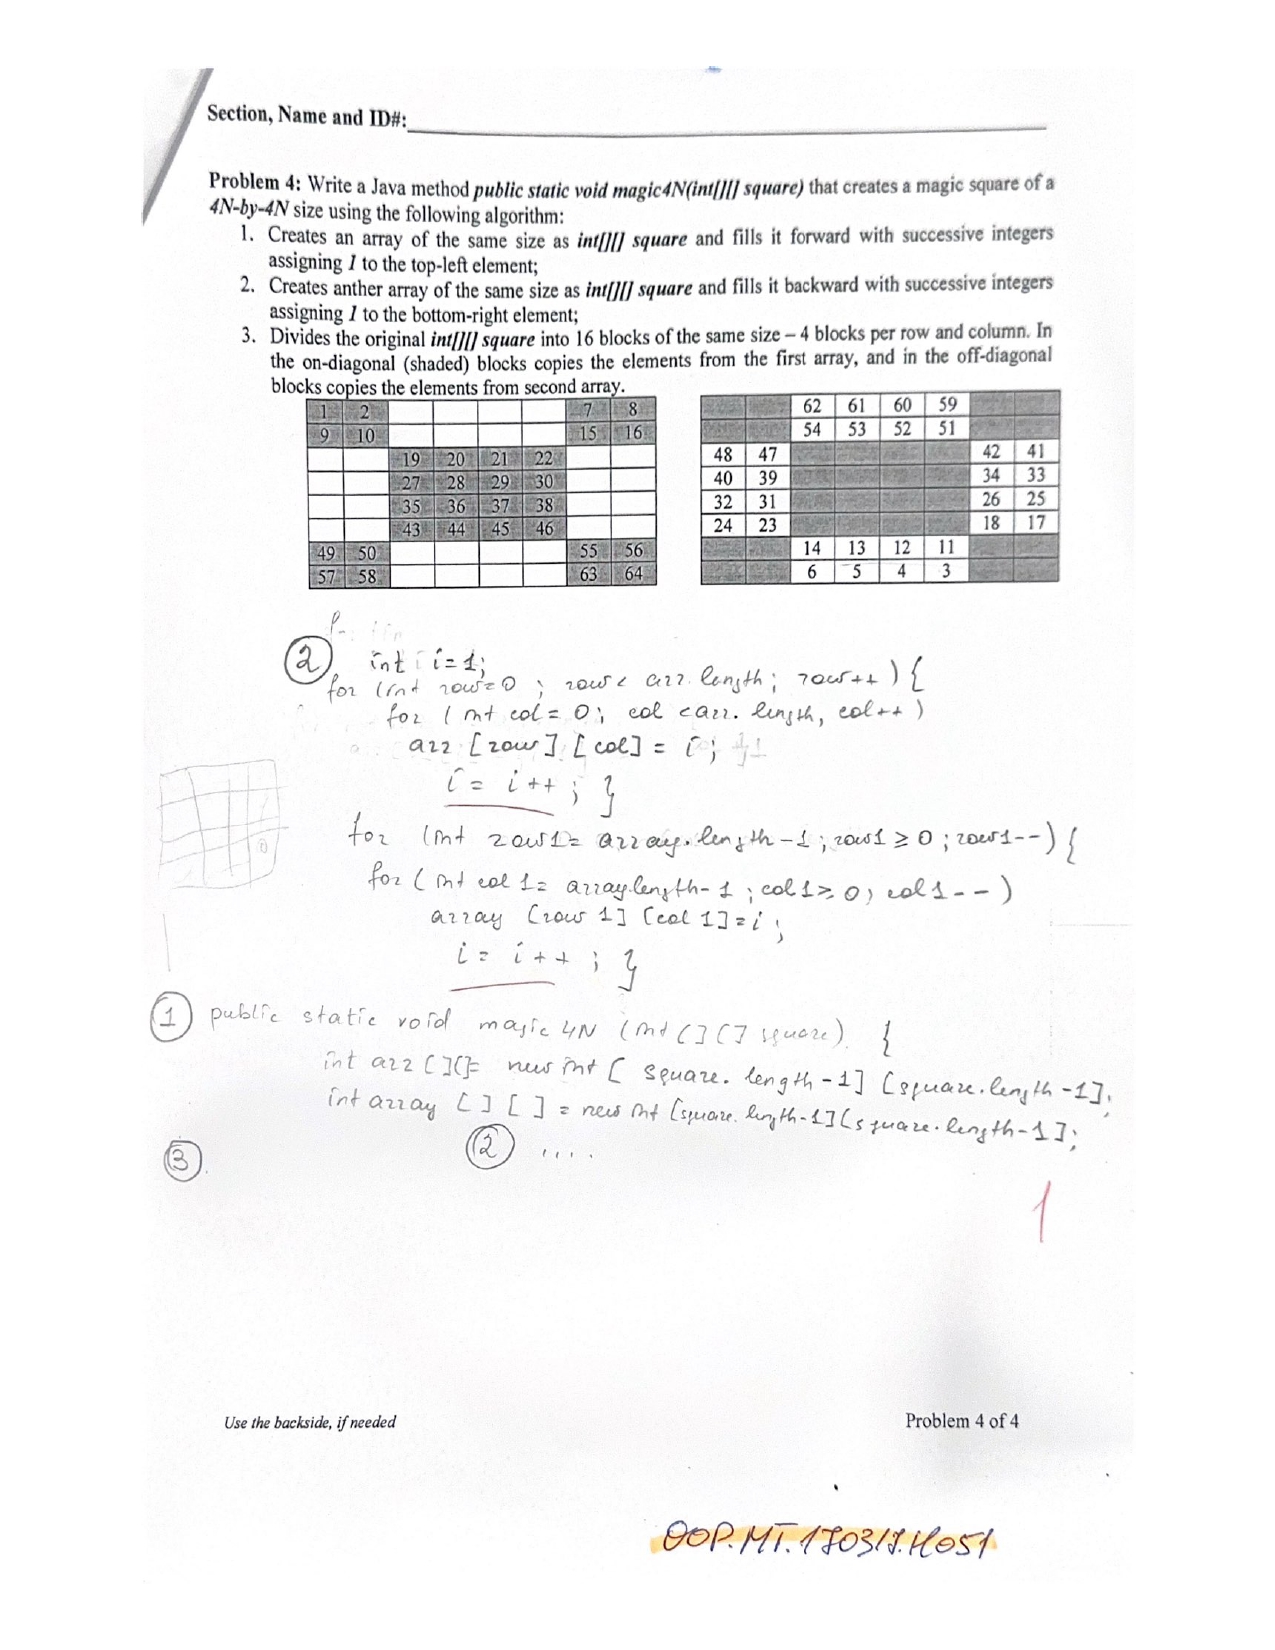 Section, Name and ID#:
Problem 4: Write a Java method public static void magic4N(int[][] square) that creates a magic square of a
4N-by-4N size using the following algorithm:
1. Creates an array of the same size as int[][] square and fills it forward with successive integers
assigning 1 to the top-left element;
2. Creates anther array of the same size as int[][] square and fills it backward with successive integers
assigning 1 to the bottom-right element;
3. Divides the original int[][] square into 16 blocks of the same size – 4 blocks per row and column. In
the on-diagonal (shaded) blocks copies the elements from the first array, and in the off-diagonal
blocks copies the elements from second array.
1 2 7 8 62 61 60 59
9 10 15 16 54 53 52 51
19 20 21 22 48 47 42 41
27 28 29 30 40 39 34 33
35 36 37 38 32 31 26 25
43 44 45 46 24 23 18 17
49 50 55 56 14 13 12 11
57 58 63 64 6 5 4 3
2 int i=1;
for (int row=0 ; row < arr.length ; row++ ) {
for ( int col = 0; col < arr.length, col++ )
arr [row] [col] = i;
i = i++ ; }
for (int row1= array.length-1 ; row1 ≥ 0 ; row1--) {
for ( int col 1= array.length-1 ; col1 ≥ 0; col1-- )
array [row 1] [col 1] = i ;
i = i++ ; }
1 public static void magic 4N (int [] [] square) {
int arr [][]= new int [ square. length -1] [square.length -1];
int array [ ] [ ] = new int [square. length-1][square.length-1];
2 ....
3.
1
Use the backside, if needed
Problem 4 of 4
OOP.MT.170317.H051